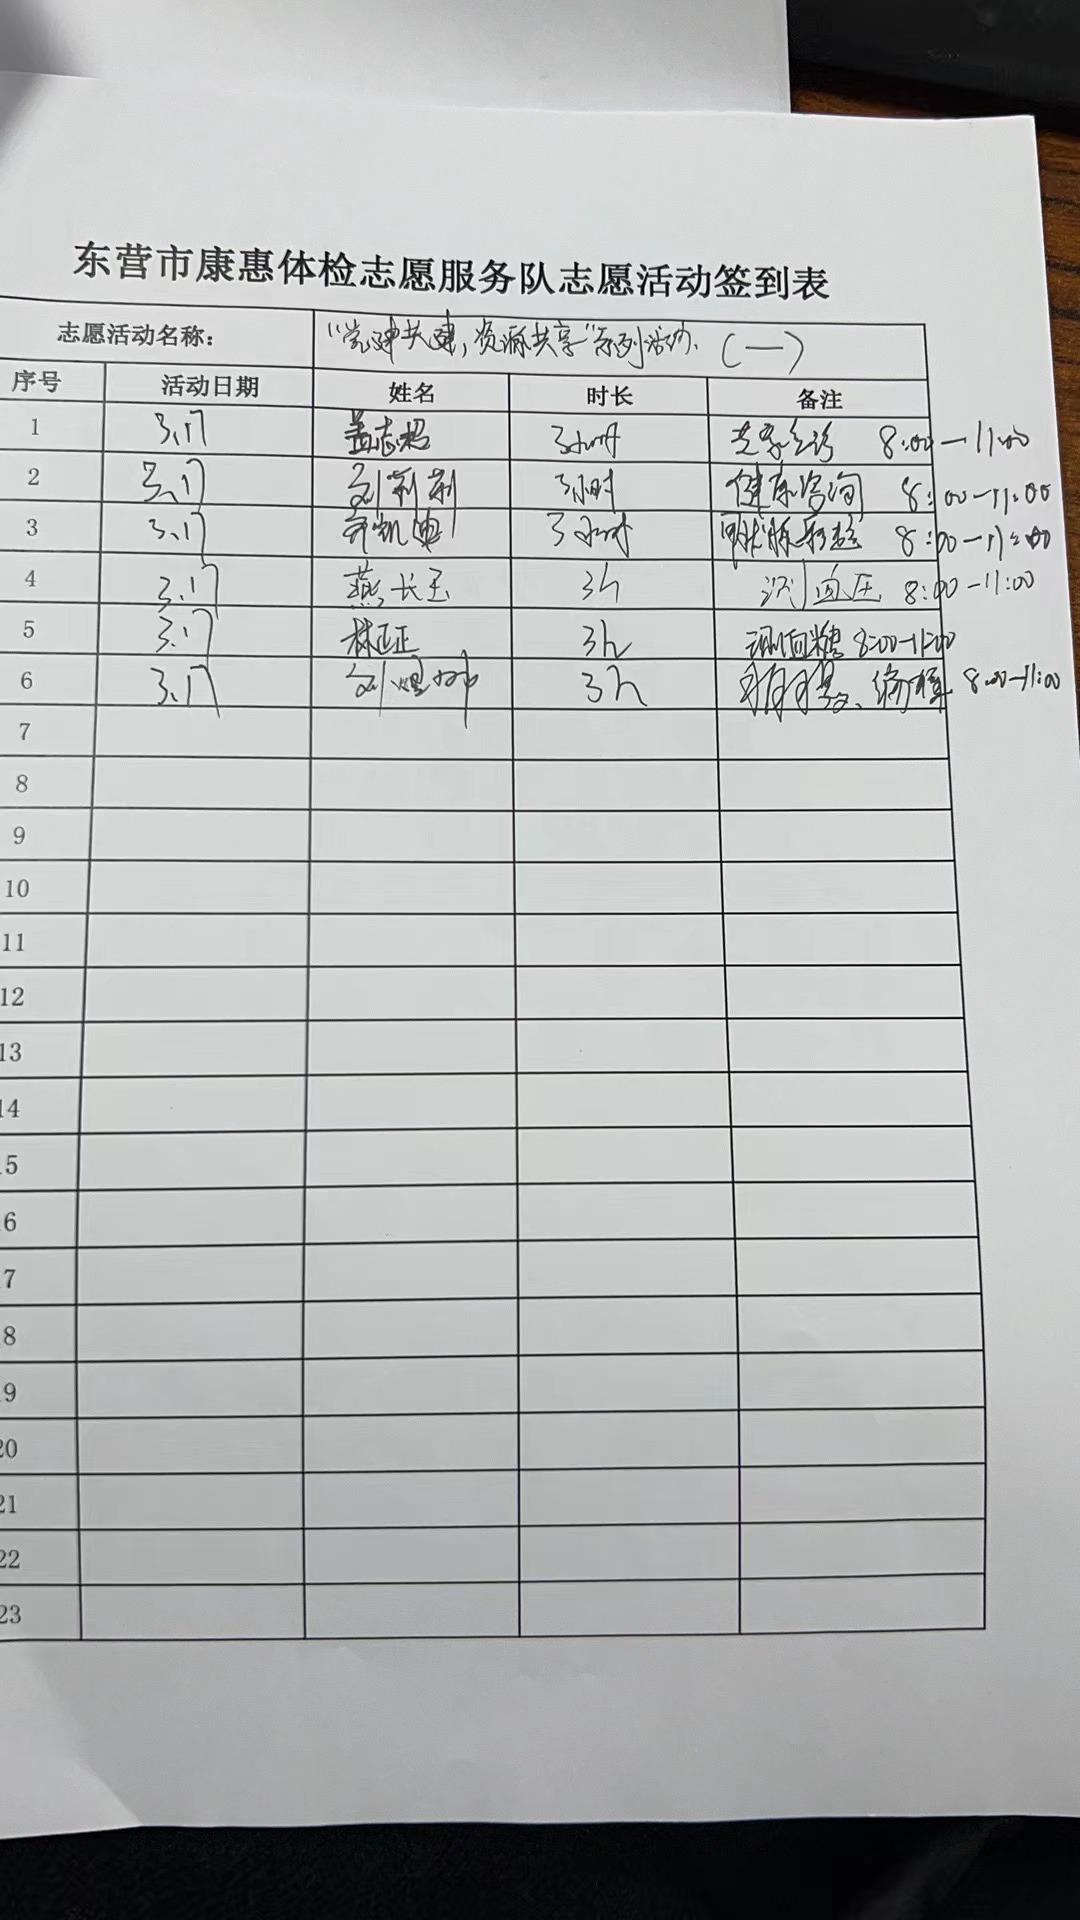 东营市康惠体检志愿服务队志愿活动签到表
志愿活动名称： "党建共建，资源共享"系列活动．（一）
序号 活动日期 姓名 时长 备注
1 3.17 盖志超 3小时 8:00—11:00
2 3.17 刘莉莉 3小时 健康咨询 8:00—11:00
3 3.17 凯 3小时 8:00—11:00
4 3.17 燕长玉 3h 测血压 8:00—11:00
5 3.17 林正正 3h 测血糖 8:00—11:00
6 3.17 刘 3h 8:00—11:00
7
8
9
10
11
12
13
14
15
16
17
18
19
20
21
22
23